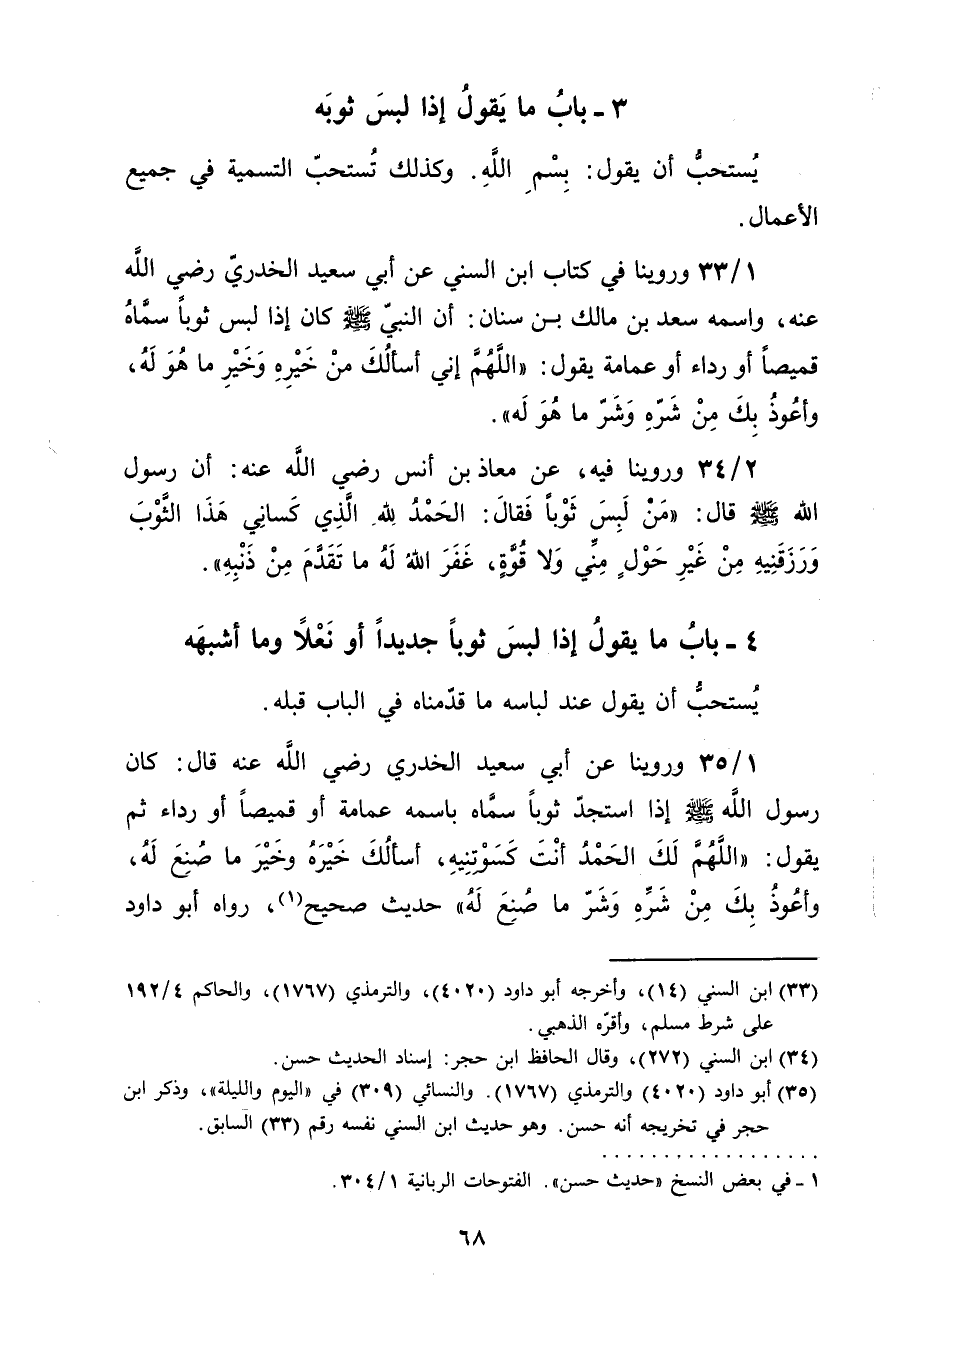 ٣ ـ بابُ ما يَقولُ إذا لبسَ ثوبَه
يُستحبُّ أن يقول: بِسْمِ اللَّهِ. وكذلك تُستحبّ التسمية في جميع
الأعمال.
٣٣/١ وروينا في كتاب ابن السني عن أبي سعيد الخدريّ رضي اللَّه
عنه، واسمه سعد بن مالك بـن سنان: أن النبيّ ﷺ كان إذا لبس ثوباً سمَّاهُ
قميصاً أو رداء أو عمامة يقول: «اللَّهُمَّ إني أسألُكَ منْ خَيْرِهِ وَخَيْرِ ما هُوَ لَهُ،
وأعُوذُ بِكَ مِنْ شَرّهِ وَشَرّ ما هُوَ لَه».
٣٤/٢ وروينا فيه، عن معاذ بن أنس رضي اللَّه عنه: أن رسول
الله ﷺ قال: «مَنْ لَبِسَ ثَوْباً فَقالَ: الحَمْدُ لِلّهِ الَّذِي كَساني هَذَا الثَّوْبَ
وَرَزَقَنِيهِ مِنْ غَيْرِ حَوْلٍ مِنِّي وَلا قُوَّةٍ، غَفَرَ اللهُ لَهُ ما تَقَدَّمَ مِنْ ذَنْبِهِ».
٤ ـ بابُ ما يقولُ إذا لبسَ ثوباً جديداً أو نَعْلاً وما أشبهَه
يُستحبُّ أن يقول عند لباسه ما قدّمناه في الباب قبله.
٣٥/١ وروينا عن أبي سعيد الخدري رضي اللَّه عنه قال: كان
رسول اللَّه ﷺ إذا استجدّ ثوباً سمَّاه باسمه عمامة أو قميصاً أو رداء ثم
يقول: «اللَّهُمَّ لَكَ الحَمْدُ أنْتَ كَسَوْتِنِيهِ، أسألُكَ خَيْرَهُ وخَيْرَ ما صُنِعَ لَهُ،
وأعُوذُ بِكَ مِنْ شَرِّهِ وَشَرّ ما صُنِعَ لَهُ» حديث صحيح(١)، رواه أبو داود
(٣٣) ابن السني (١٤)، وأخرجه أبو داود (٤٠٢٠)، والترمذي (١٧٦٧)، والحاكم ١٩٢/٤
على شرط مسلم، وأقرّه الذهبي.
(٣٤) ابن السني (٢٧٢)، وقال الحافظ ابن حجر: إسناد الحديث حسن.
(٣٥) أبو داود (٤٠٢٠) والترمذي (١٧٦٧). والنسائي (٣٠٩) في «اليوم والليلة»، وذكر ابن
حجر في تخريجه أنه حسن. وهو حديث ابن السني نفسه رقم (٣٣) السابق.
١ ـ في بعض النسخ «حديث حسن». الفتوحات الربانية ٣٠٤/١.
٦٨